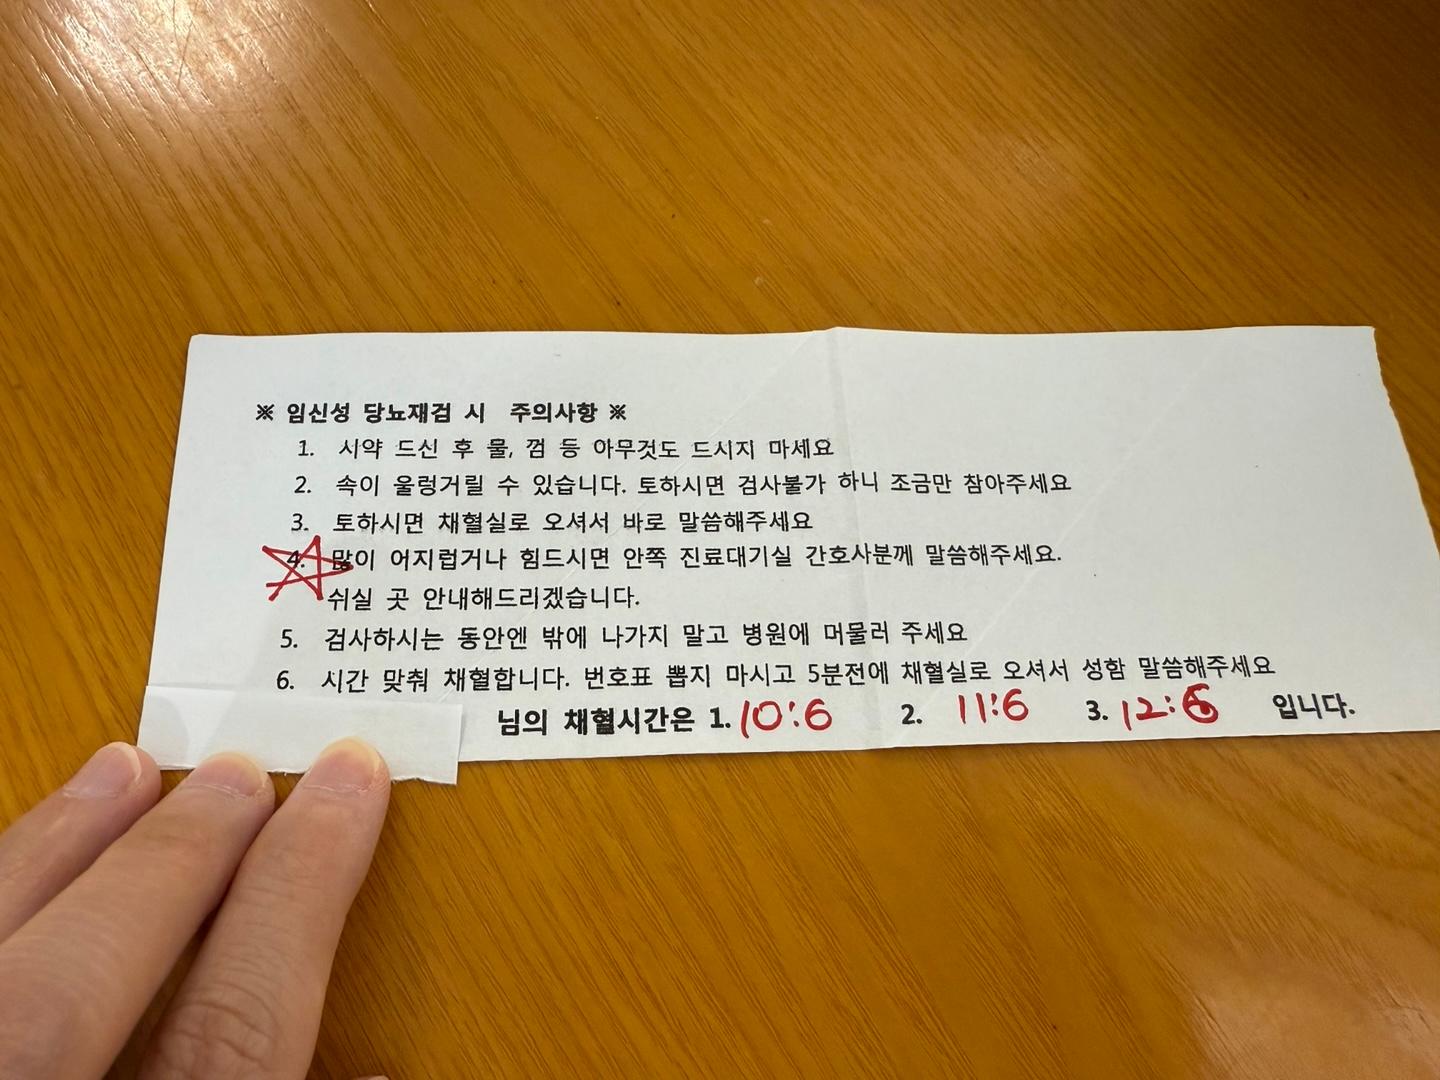 ※ 임신성 당뇨재검 시 주의사항 ※
1. 시약 드신 후 물, 껌 등 아무것도 드시지 마세요
2. 속이 울렁거릴 수 있습니다. 토하시면 검사불가 하니 조금만 참아주세요
3. 토하시면 채혈실로 오셔서 바로 말씀해주세요
4. 많이 어지럽거나 힘드시면 안쪽 진료대기실 간호사분께 말씀해주세요.
쉬실 곳 안내해드리겠습니다.
5. 검사하시는 동안엔 밖에 나가지 말고 병원에 머물러 주세요
6. 시간 맞춰 채혈합니다. 번호표 뽑지 마시고 5분전에 채혈실로 오셔서 성함 말씀해주세요
님의 채혈시간은 1. 10:6 2. 11:6 3. 12:6 입니다.